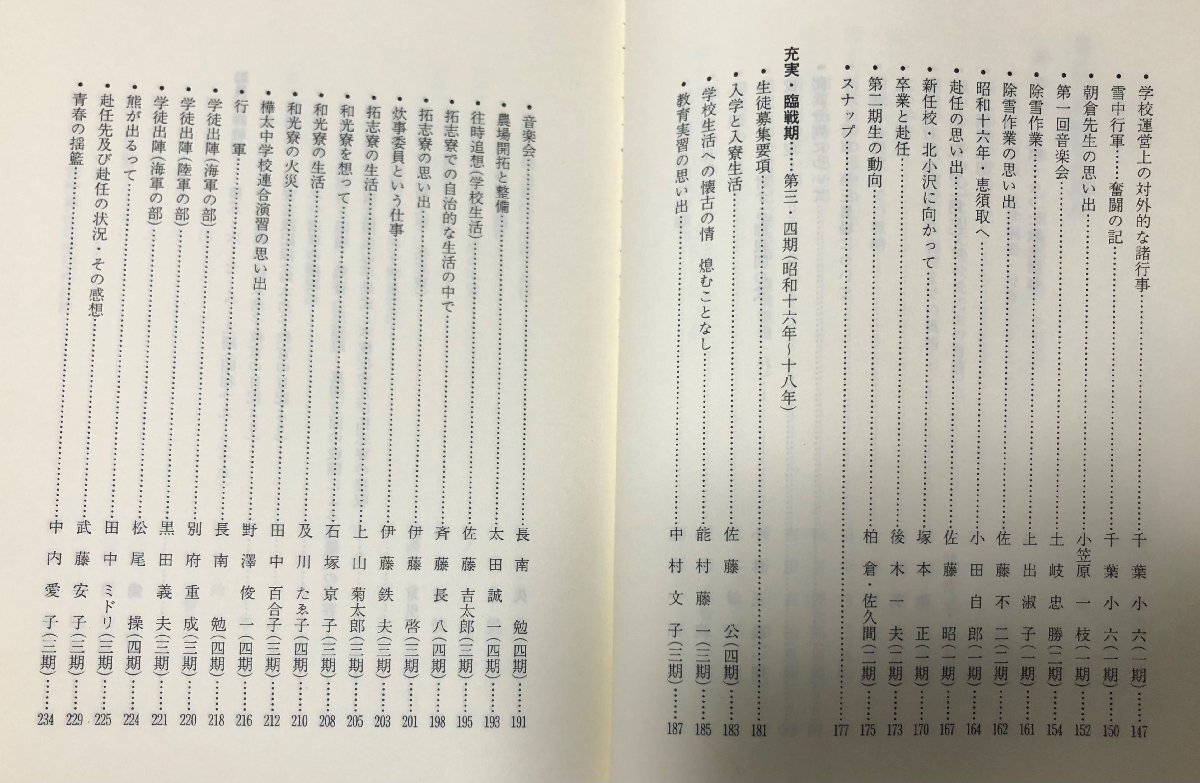 ・学校運営上の対外的な諸行事……千葉小六(一期)……147
・雪中行軍……奮闘の記……千葉小六(一期)……150
・朝倉先生の思い出……小笠原一枝(一期)……152
・第一回音楽会……土岐忠勝(二期)……154
・除雪作業……上出淑子(一期)……161
・除雪作業の思い出……佐藤不二(二期)……162
・昭和十六年・恵須取へ……小田白郎(一期)……164
・赴任の思い出……佐藤昭(一期)……167
・新任校・北小沢に向かって……塚本正(一期)……170
・卒業と赴任……後木一夫(一期)……173
・第二期生の動向……柏倉・佐久間(二期)……175
・スナップ……177
充実・臨戦期……第三・四期(昭和十六年~十八年)
・生徒募集要項……181
・入学と入寮生活……佐藤公(四期)……183
・学校生活への懐古の情 熄むことなし……能村藤一(三期)……185
・教育実習の思い出……中村文子(三期)……187
・音楽会……長南勉(四期)……191
・農場開拓と整備……太田誠一(四期)……193
・往時追想(学校生活)……佐藤吉太郎(三期)……195
・拓志寮での自治的な生活の中で……斉藤長八(四期)……198
・拓志寮の思い出……伊藤啓(三期)……201
・炊事委員という仕事……伊藤鉄夫(三期)……203
・拓志寮の生活……上山菊太郎(三期)……205
・和光寮を想って……石塚京子(三期)……208
・和光寮の生活……及川たゑ子(四期)……210
・和光寮の火災……田中百合子(三期)……212
・樺太中学校連合演習の思い出……野澤俊一(四期)……216
・行軍……長南勉(四期)……218
・学徒出陣(海軍の部)……別府重成(三期)……220
・学徒出陣(陸軍の部)……黒田義夫(三期)……221
・学徒出陣(海軍の部)……松尾操(四期)……224
・熊が出るって……田中ミドリ(三期)……225
・赴任先及び赴任の状況・その感想……武藤安子(三期)……229
・青春の揺籃……中内愛子(三期)……234